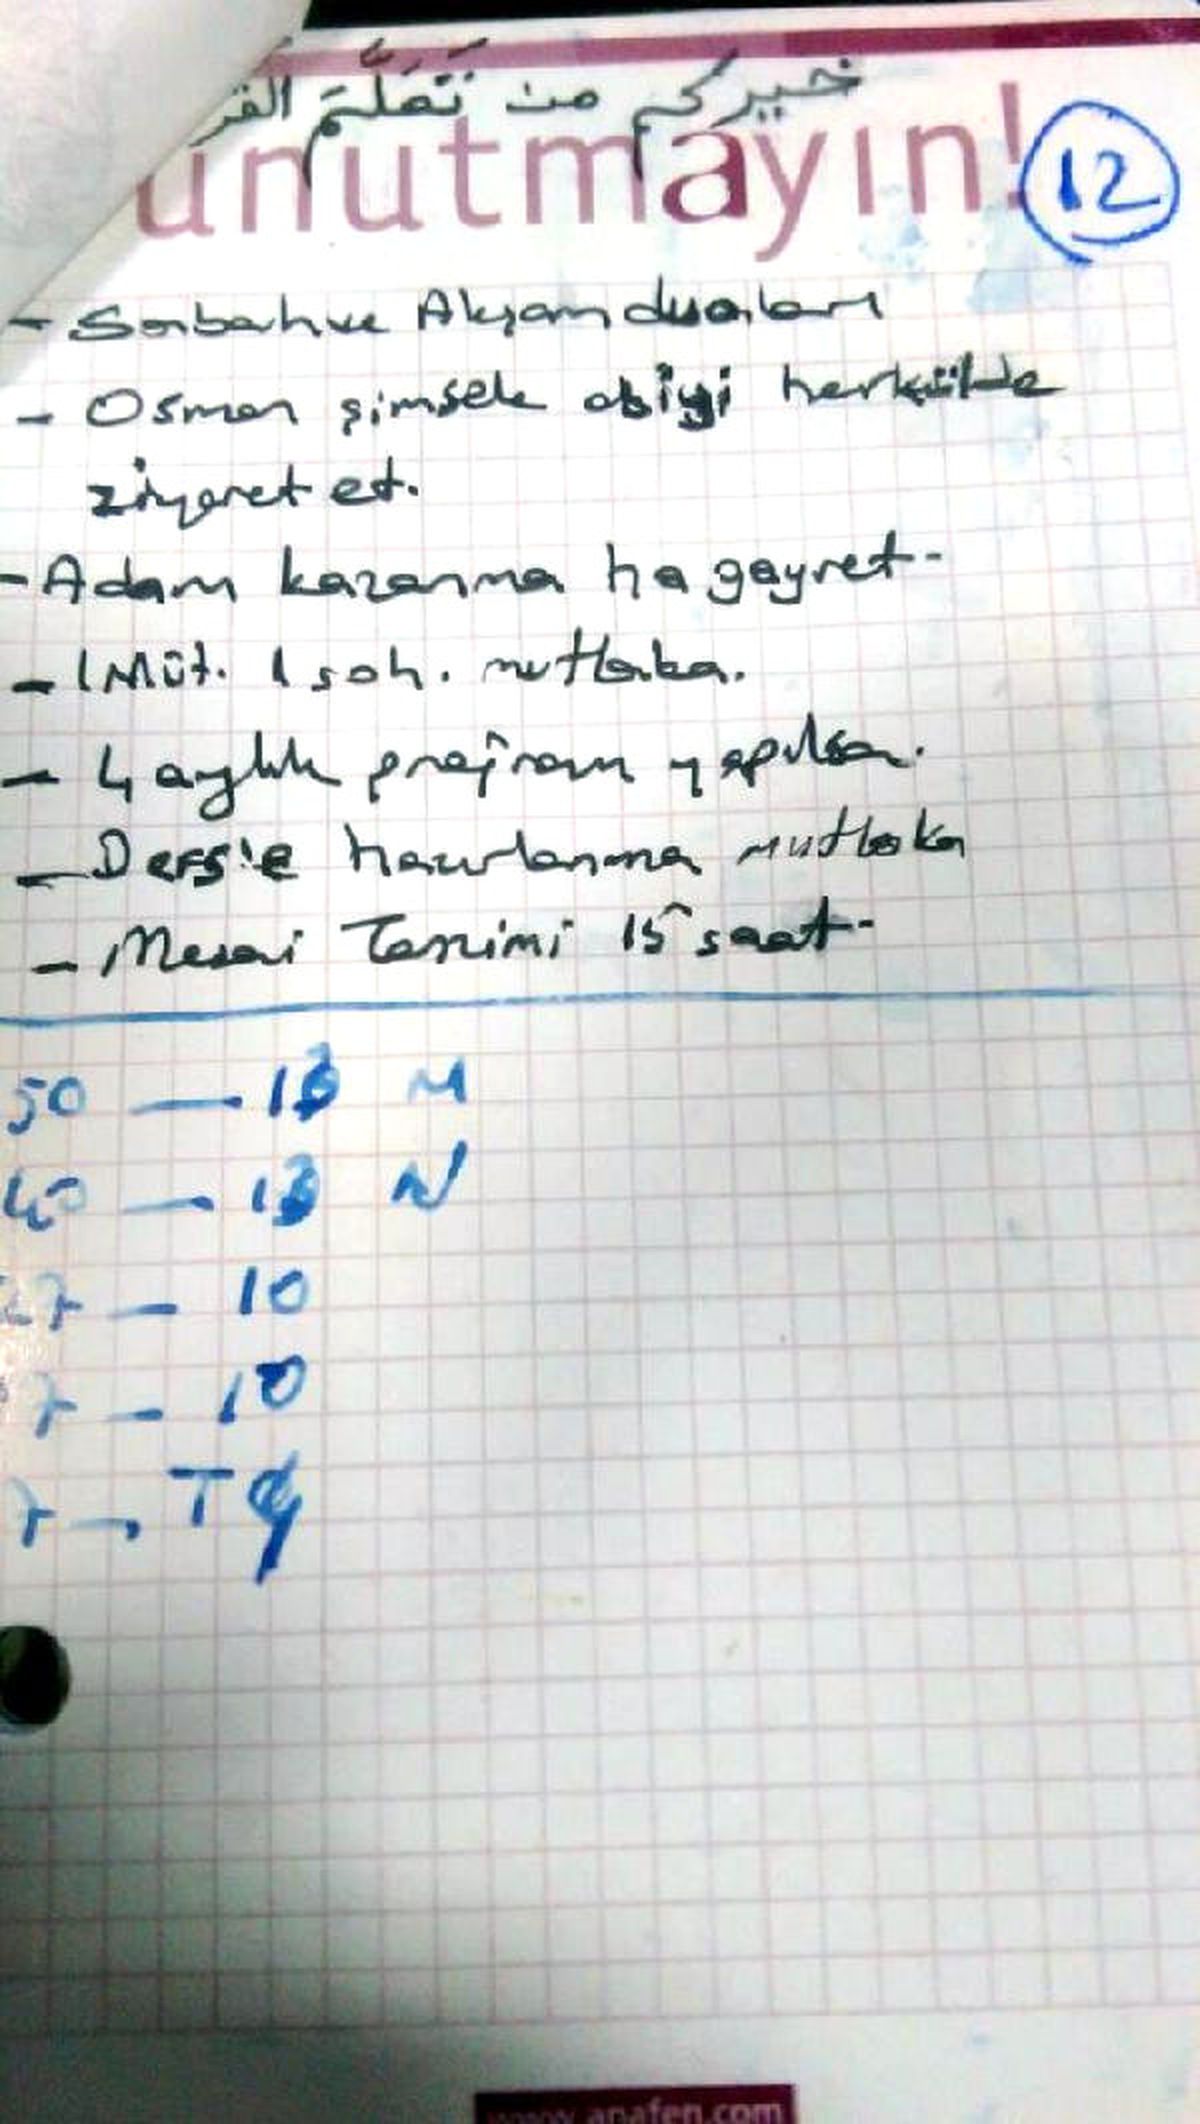 خيركم من تَعَلَّمَ القر
unutmayın!
12
- Sabah ve Akşam duaları
- Osman şimşek abiyi herkülde
ziyaret et.
- Adam kazanma ha gayret -
- 1 Müt. 1 soh. mutlaka.
- 4 aylık program yapılsın.
- Derse hazırlanma mutlaka
- Mesai Tanzimi 15 saat -
50 — 13 M
40 — 13 N
27 — 10
7 — 10
7
www.anafen.com